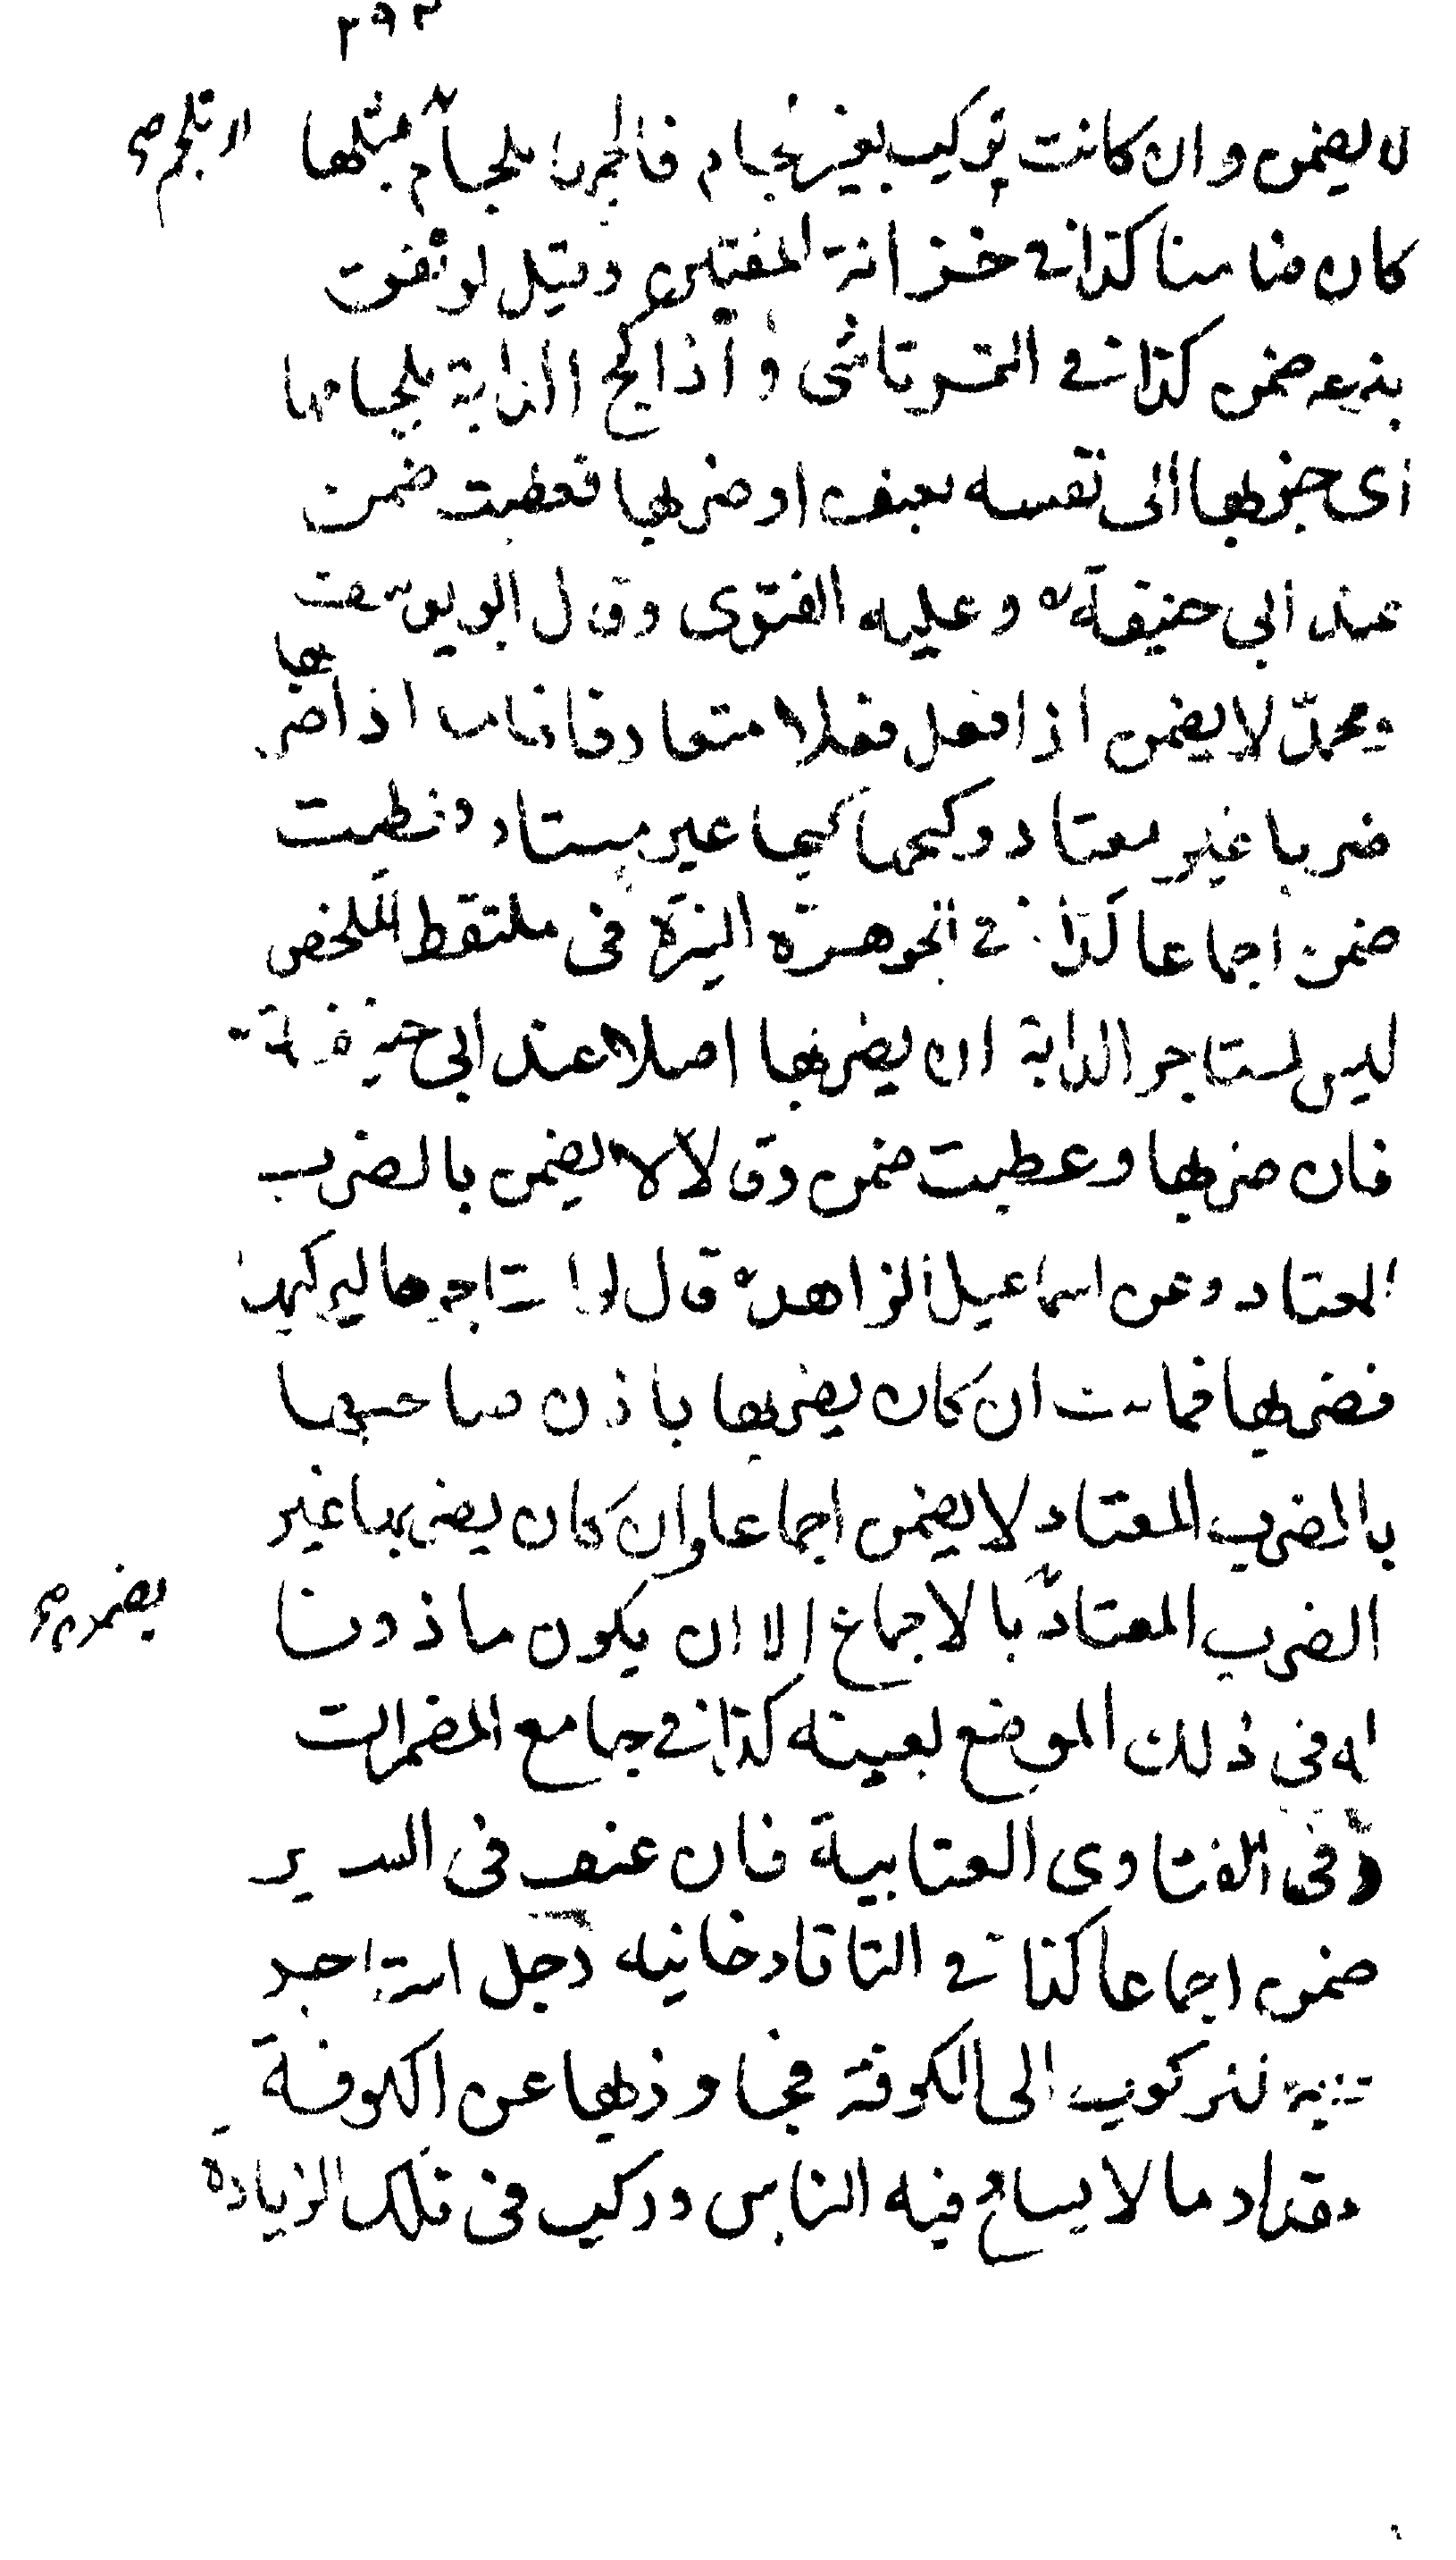 ٢٩٣
لا يضمن وان كانت تركب بغير لجام فالجمها بلجام مثلها
او تلجم صح
كان ضامنا كذا في خزانة المفتين وقيل لو نفقت
بنزعه ضمن كذا في التمرتاشى واذا كبح الدابة بلجامها
اى جذبها الى نفسه بعنف او ضربها فعطبت ضمن
عند ابي حنيفة وعليه الفتوى وقال ابو يوسف
ومحمد لا يضمن اذا فعل فعلا متعارفا فاما اذا ضربها
ضربا غير معتاد وكبحها كبحا غير معتاد وعطبت
ضمن اجماعا كذا في الجوهرة النيرة فى ملتقط الملخص
ليس لمستاجر الدابة ان يضربها اصلا عند ابى حنيفة
فان ضربها وعطبت ضمن وقالا لا يضمن بالضرب
المعتاد وعن اسماعيل الزاهد قال لو استاجرها ليركبها
فضربها فماتت ان كان يضربها باذن صاحبها
بالضرب المعتاد لا يضمن اجماعا وان كان يضربها غير
الضرب المعتاد بالاجماع الا ان يكون ماذونا
يضمن صح
له فى ذلك الموضع بعينه كذا في جامع المضمرات
وفى الفتاوى العتابية فان عنف فى السير
ضمن اجماعا كذا في التاتارخانيه رجل استاجر
دابة للركوب الى الكوفة فجاوز بها عن الكوفة
مقدار ما لا يسامح فيه الناس وركب فى تلك الزيادة